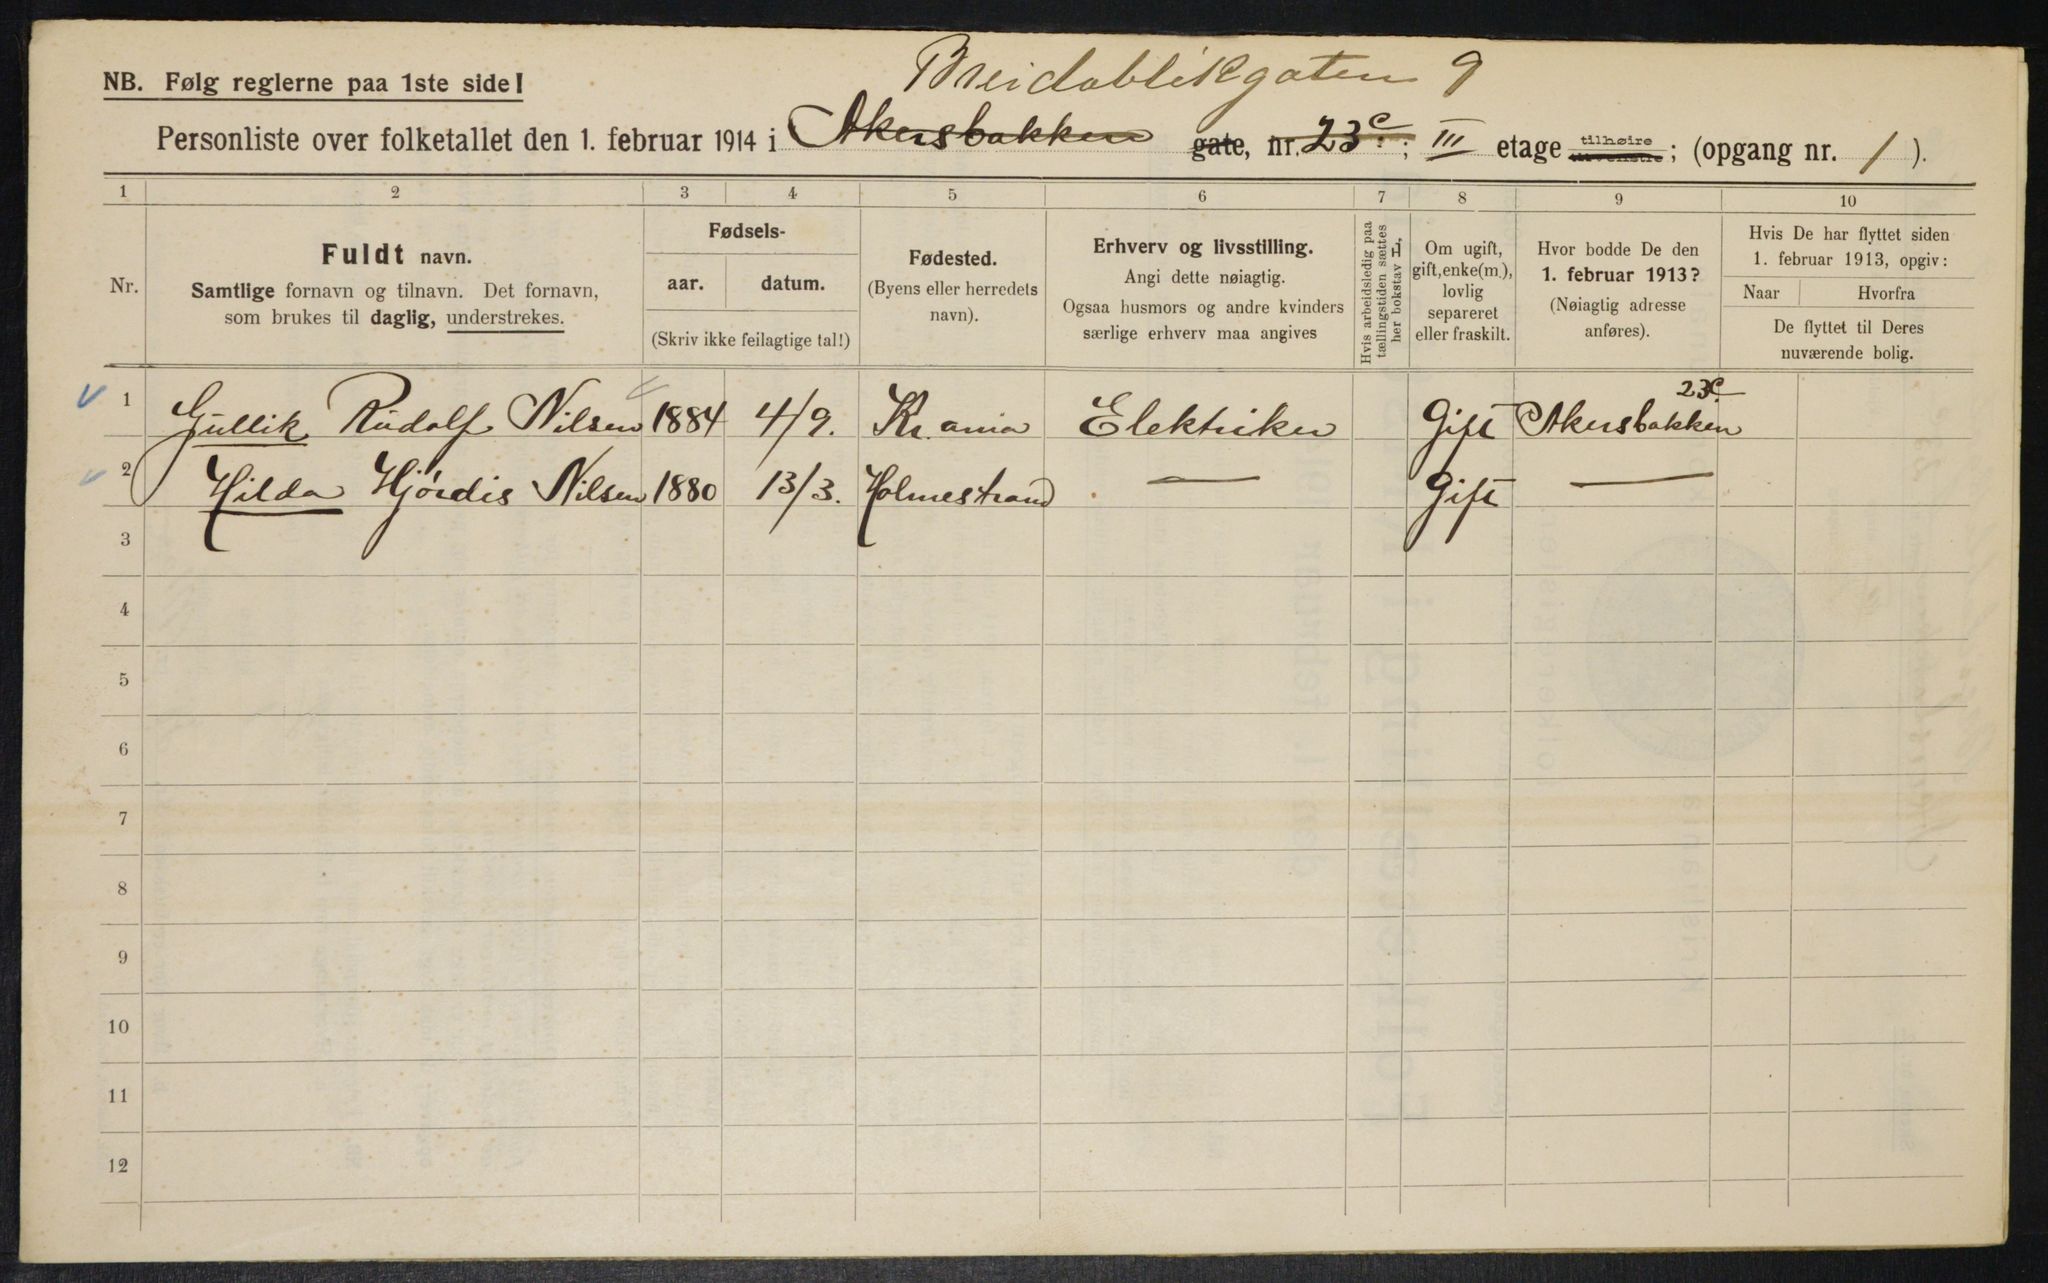 Breidablikgaten 9
NB. Følg reglerne paa 1ste side!
Personliste over folketallet den 1. februar 1914 i Akersbakken gate, nr. 23c; III etage tilhøire; (opgang nr. 1).
1 2 3 4 5 6 7 8 9 10
Nr.
Fuldt navn.
Samtlige fornavn og tilnavn. Det fornavn,
som brukes til daglig, understrekes.
Fødsels-
aar. datum.
(Skriv ikke feilagtige tal!)
Fødested.
(Byens eller herredets
navn).
Erhverv og livsstilling.
Angi dette nøiagtig.
Ogsaa husmors og andre kvinders
særlige erhverv maa angives
Hvis arbeidsledig paa
tællingstiden sættes
her bokstav L.
Om ugift,
gift, enke(m.),
lovlig
separeret
eller fraskilt.
Hvor bodde De den
1. februar 1913?
(Nøiagtig adresse
anføres).
Hvis De har flyttet siden
1. februar 1913, opgiv:
Naar Hvorfra
De flyttet til Deres
nuværende bolig.
1 Gullik Rudolf Nilsen 1884 4/9. Kr.ania Elektriker Gift Akersbakken 23c
2 Hilda Hjørdis Nilsen 1880 13/3. Holmestrand — Gift —
3
4
5
6
7
8
9
10
11
12